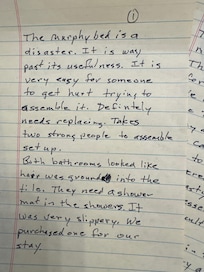 ①
The murphy bed is a
disaster. It is way
past its usefulness. It is
very easy for someone
to get hurt trying to
assemble it. Defintely
needs replacing. Takes
two strong people to assemble
set up.
Both bathrooms looked like
hair was ground into the
tile. They need a shower
mat in the showers. It
was very slippery. We
purchased one for our
stay.